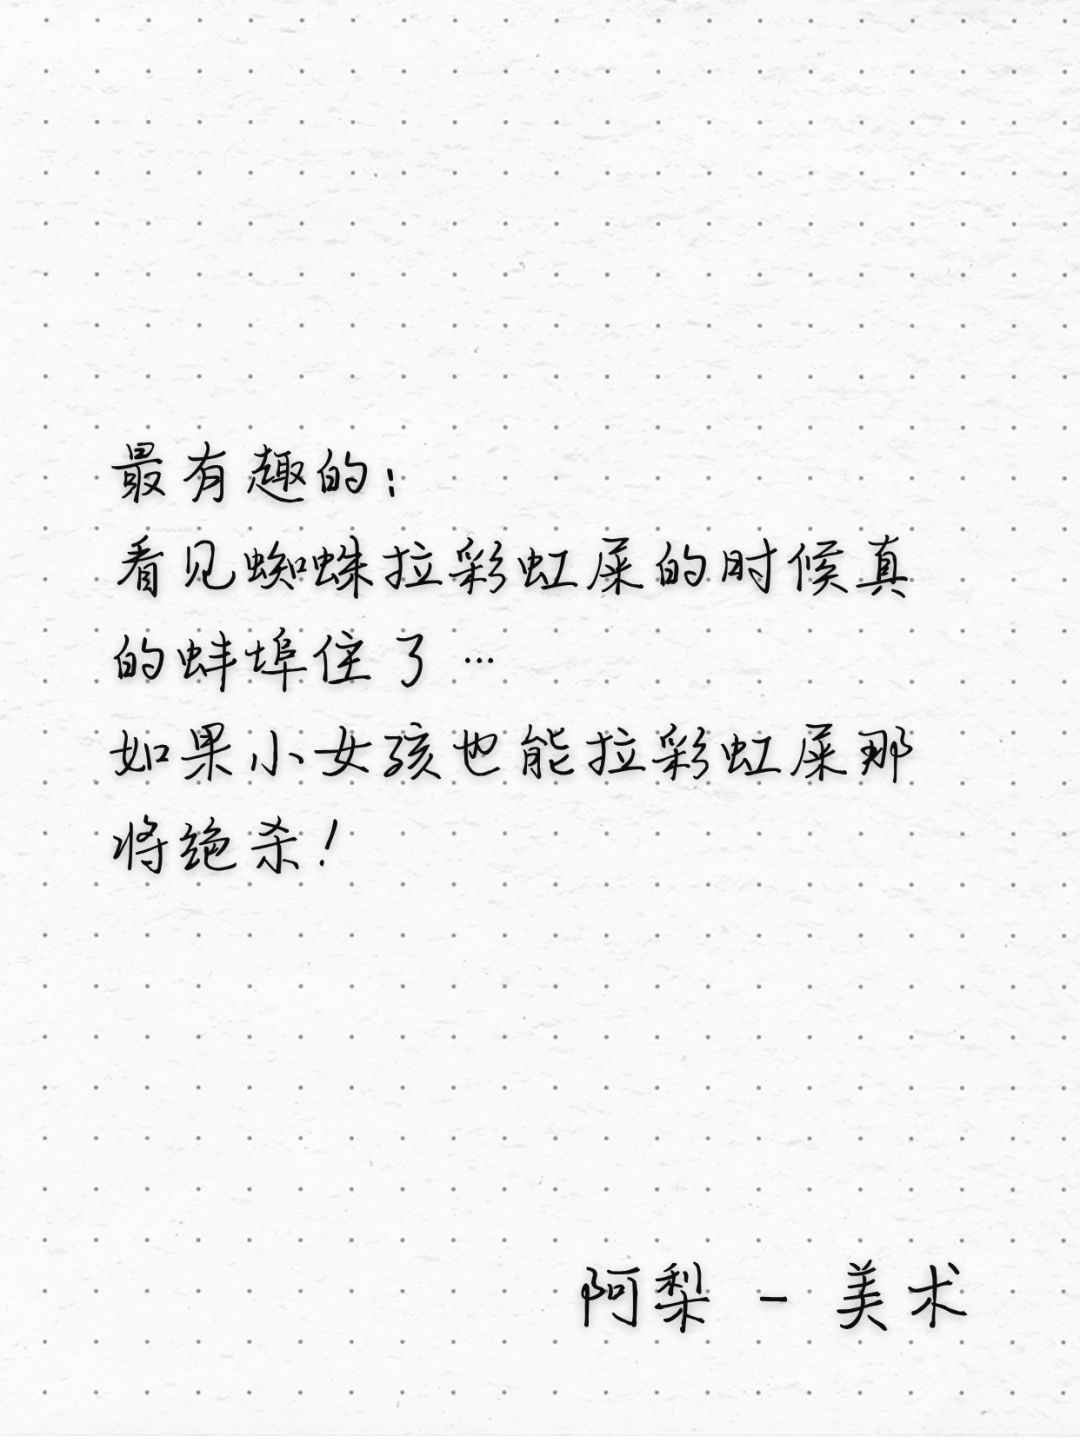 最有趣的:
看见蜘蛛拉彩虹屎的时候真
的蚌埠住了…
如果小女孩也能拉彩虹屎那
将绝杀!
阿梨-美术